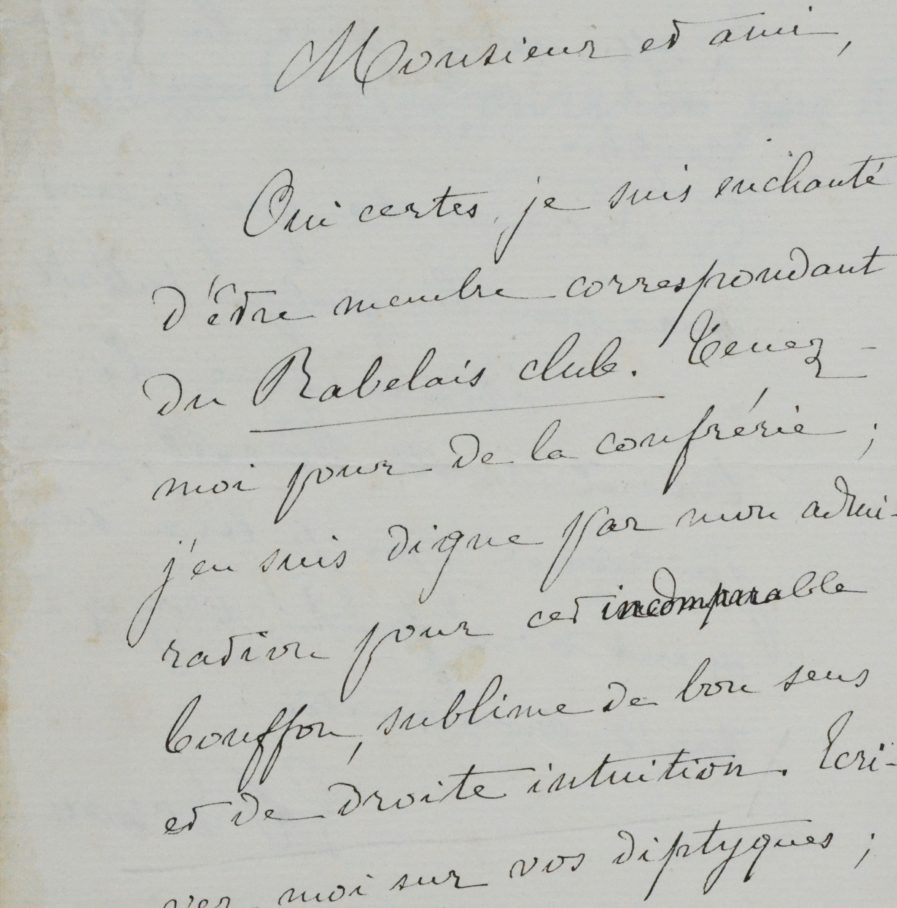 Monsieur et ami,
Oui certes, je suis enchanté
d'être membre correspondant
du Rabelais club. Tenez-
moi pour de la confrérie ;
j'en suis digne par mon admi-
ration pour cet incomparable
bouffon, sublime de bon sens
et de droite intuition. Ecri-
vez moi sur vos diptyques ;